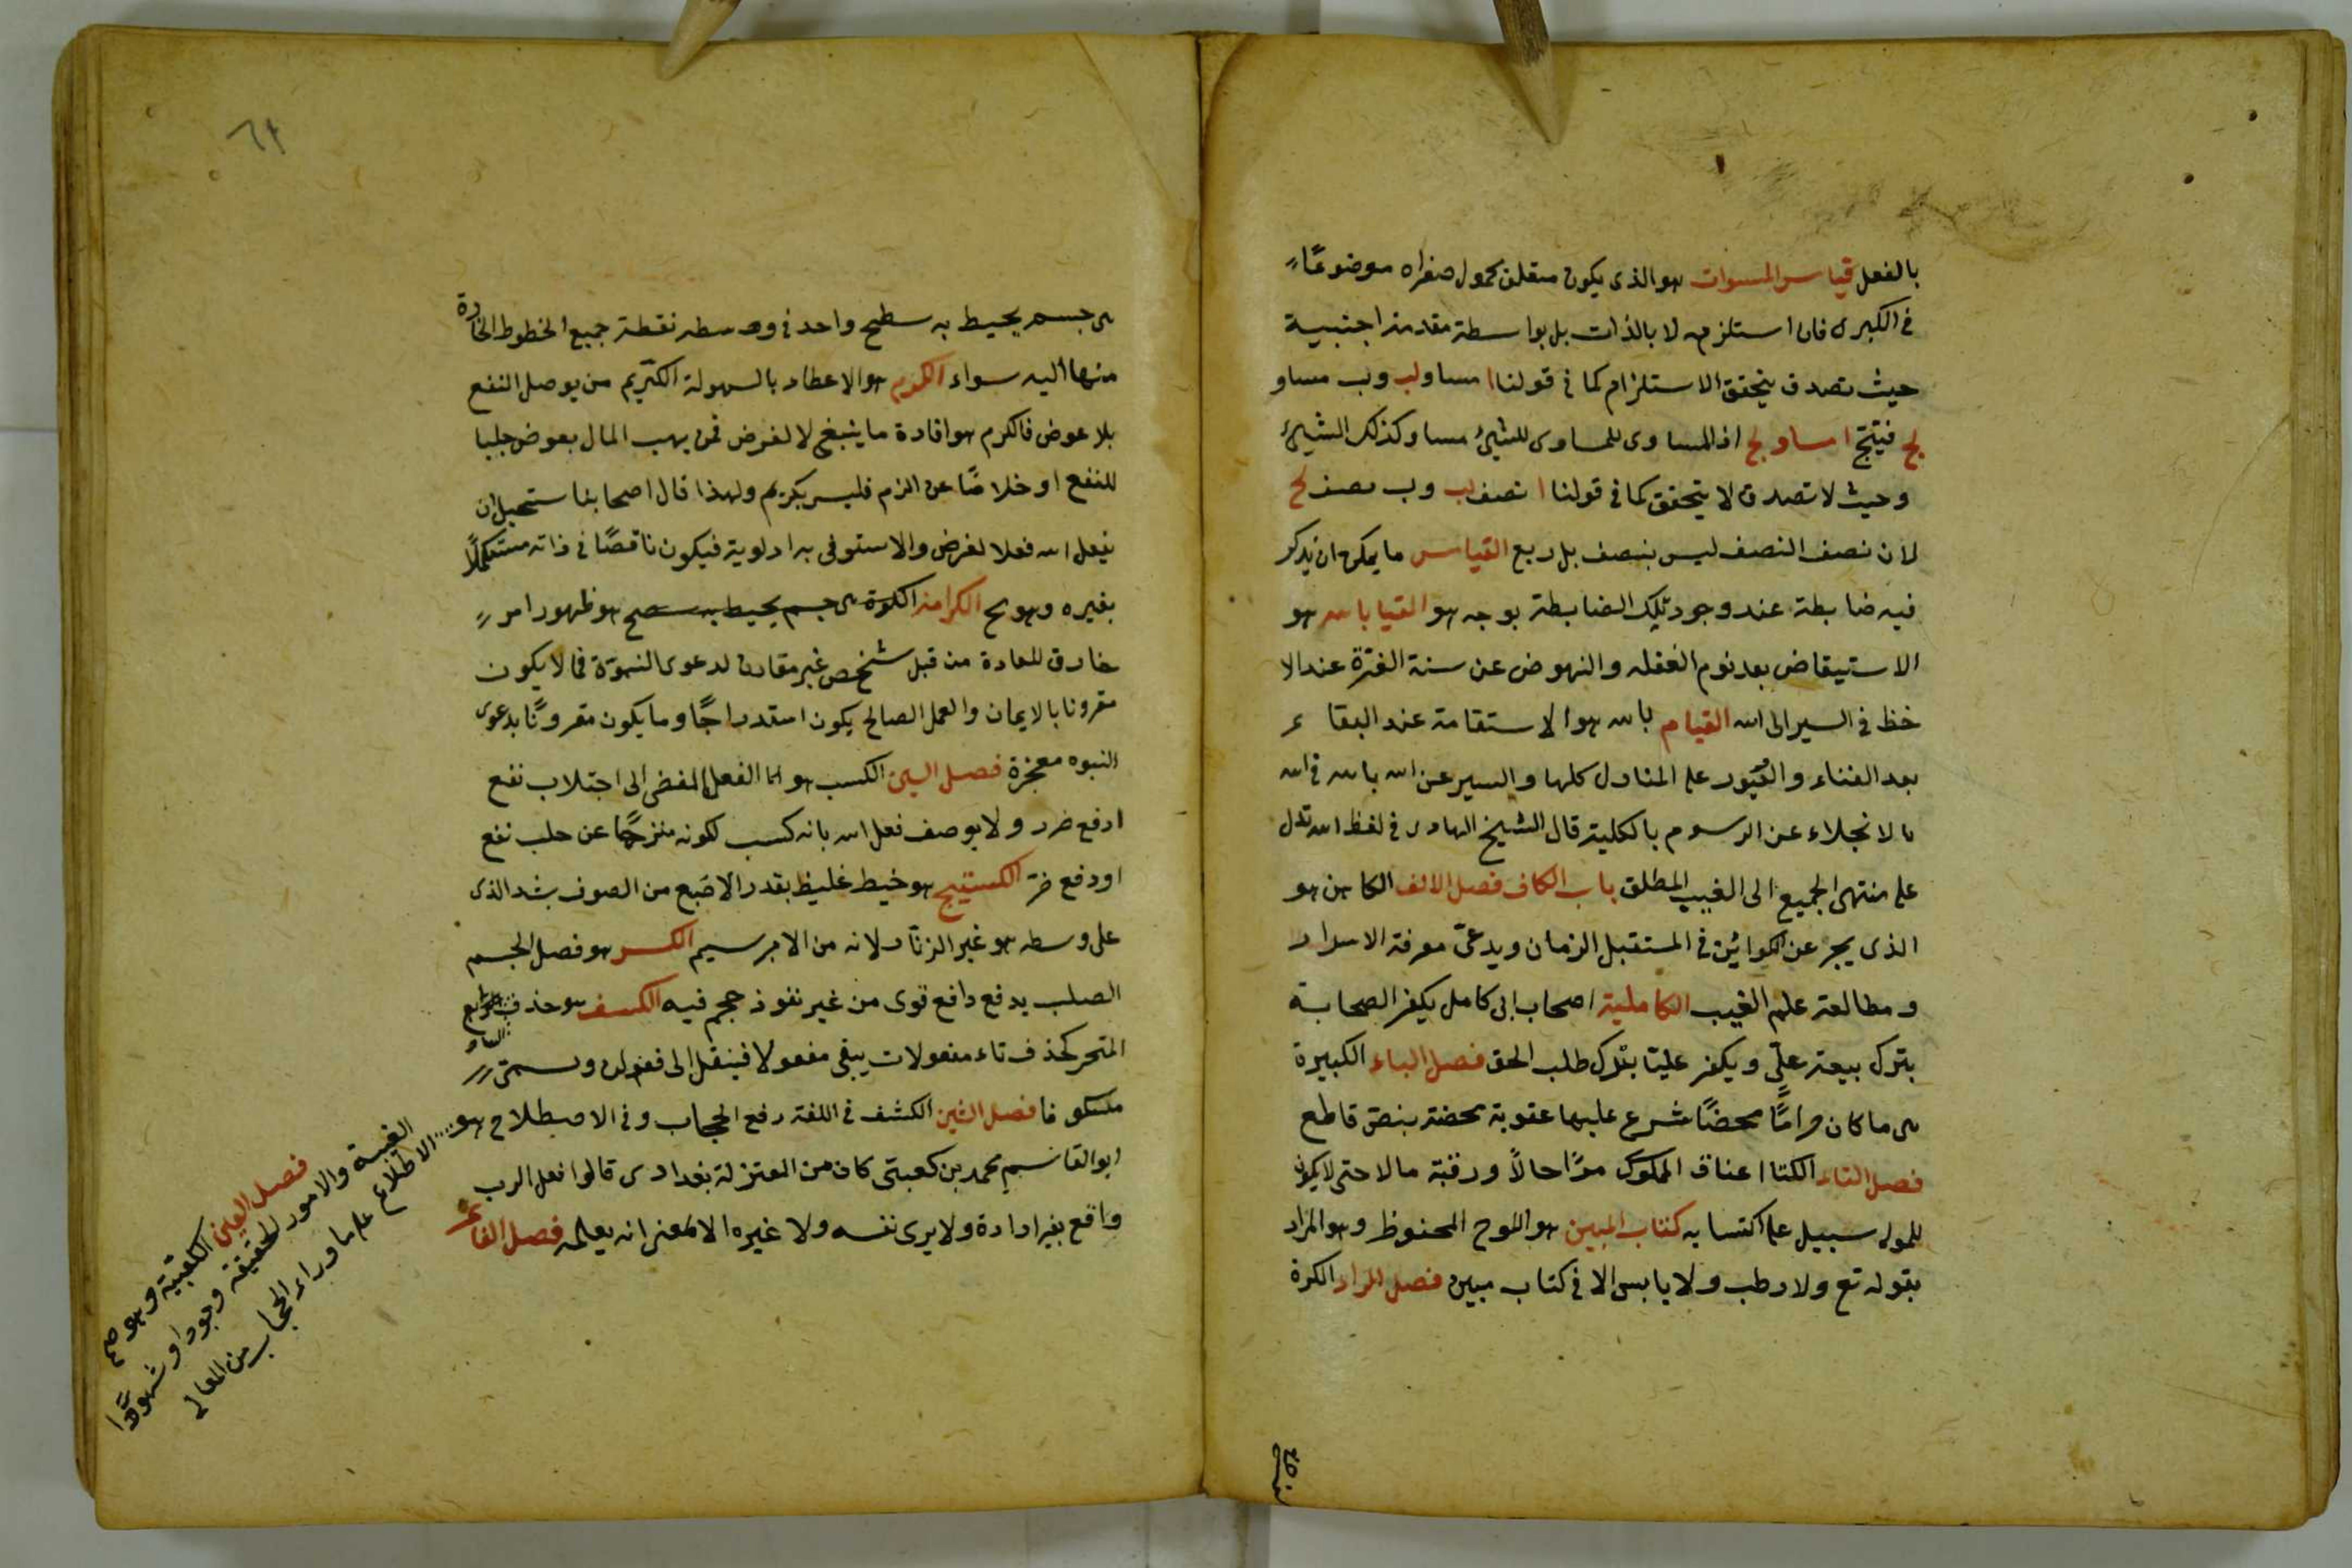 بالفعل قياس المسوات هو الذى يكون متعلق محمول صغراه موضوعًا
فى الكبرى فان استلزامه لا بالذات بل بواسطة مقدمة اجنبية
حيث تصدق يتحقق الاستلزام كما فى قولنا ا مساو لب وب مساو
لج فينتج ا مساو لج اذ المساوى للمساوى للشئ مساو كذلك الشئ
وحيث لا تصدق لا يتحقق كما فى قولنا ا نصف لب وب نصف لج
لان نصف النصف ليس بنصف بل ربع القياس ما يمكن ان يذكر
فيه ضابطة عند وجود تلك الضابطة بوجه هو القيا بالله هو
الاستيقاض بعد نوم الغفله والنهوض عن سنة الفترة عند الا
خظ فى السير الى الله القيام بالله هو الاستقامة عند البقاء
بعد الفناء والعبور على المنازل كلها والسير عن الله بالله فى الله
بالانجلاء عن الرسوم بالكلية قال الشيخ الهادى فى لفظ الله تدل
على منتهى الجميع الى الغيب المطلق باب الكاف فصل الالف الكاهن هو
الذى يخبر عن الكوائن فى المستقبل الزمان ويدعى معرفة الاسرار
ومطالعة علم الغيب الكاملية اصحاب ابى كامل يكفر الصحابة
بترك بيعة على ويكفر عليا بترك طلب الحق فصل الباء الكبيرة
هى ما كان حرامًا محضًا شرع عليها عقوبة محضة بنص قاطع
فصل التاء الكتا اعناق المملوك حرًا حالاً ورقبة مالا حتى لا يكون
للمولى سبيل على اكتسابه كتاب المبين هو اللوح المحفوظ وهو المراد
بقوله تع ولا رطب ولا يابس الا فى كتاب مبين فصل الراء الكرة
٦٤
هى جسم يحيط به سطح واحد فى وسطه نقطة جميع الخطوط الخارة
منها اليه سواء الكرم هو الاعطاء بالسهولة الكريم من يوصل النفع
بلا عوض فالكرم هو افادة ما ينبغى لا لغرض فمن يهب المال بعوض جلبا
للنفع او خلاصًا عن الذم فليس بكريم ولهذا قال اصحابنا ستحيل ان
يفعل الله فعلا لغرض والا استوفى به اولوية فيكون ناقصًا فى ذاته مستكملًا
بغيره وهو مح الكرامة الكرة هى جسم يحيط به سطح هو ظهور امر
خارق للعادة من قبل شخص غير مقارن لدعوى النبوة فما لا يكون
مقرونا بالايمان والعمل الصالح يكون استدراجًا وما يكون مقرونًا بدعوى
النبوه معجزة فصل السين الكسب هو الفعل المفضى الى اجتلاب نفع
او دفع ضرر ولا يوصف فعل الله بانه كسب لكونه منزهًا عن جلب نفع
او دفع ضر الكستيج هو خيط غليظ بقدر الاصبع من الصوف يشد الذى
على وسطه هو غير الزنار لانه من الابرسيم الكسر هو فصل الجسم
الصلب بدفع دافع قوى من غير نفوذ حجم فيه الكسف هو حذف السابع
المتحرك كحذف تاء مفعولات يبقى مفعولا فينقل الى مفعولن ويسمى
مكسوفا فصل الشين الكشف فى اللغة رفع الحجاب وفى الاصطلاح هو
الاطلاع على ما وراء الحجاب من المعانى
الغيبة والامور الحقيقة وجودا وشهودًا
فصل العين الكعبية وهو صح
ابو القاسم محمد بن كعبى كان من المعتزلة بغدادى قالوا فعل الرب
واقع بغير ارادة ولا يرى نفسه ولا غيره الا لمعنى انه يعلمه فصل الفاء